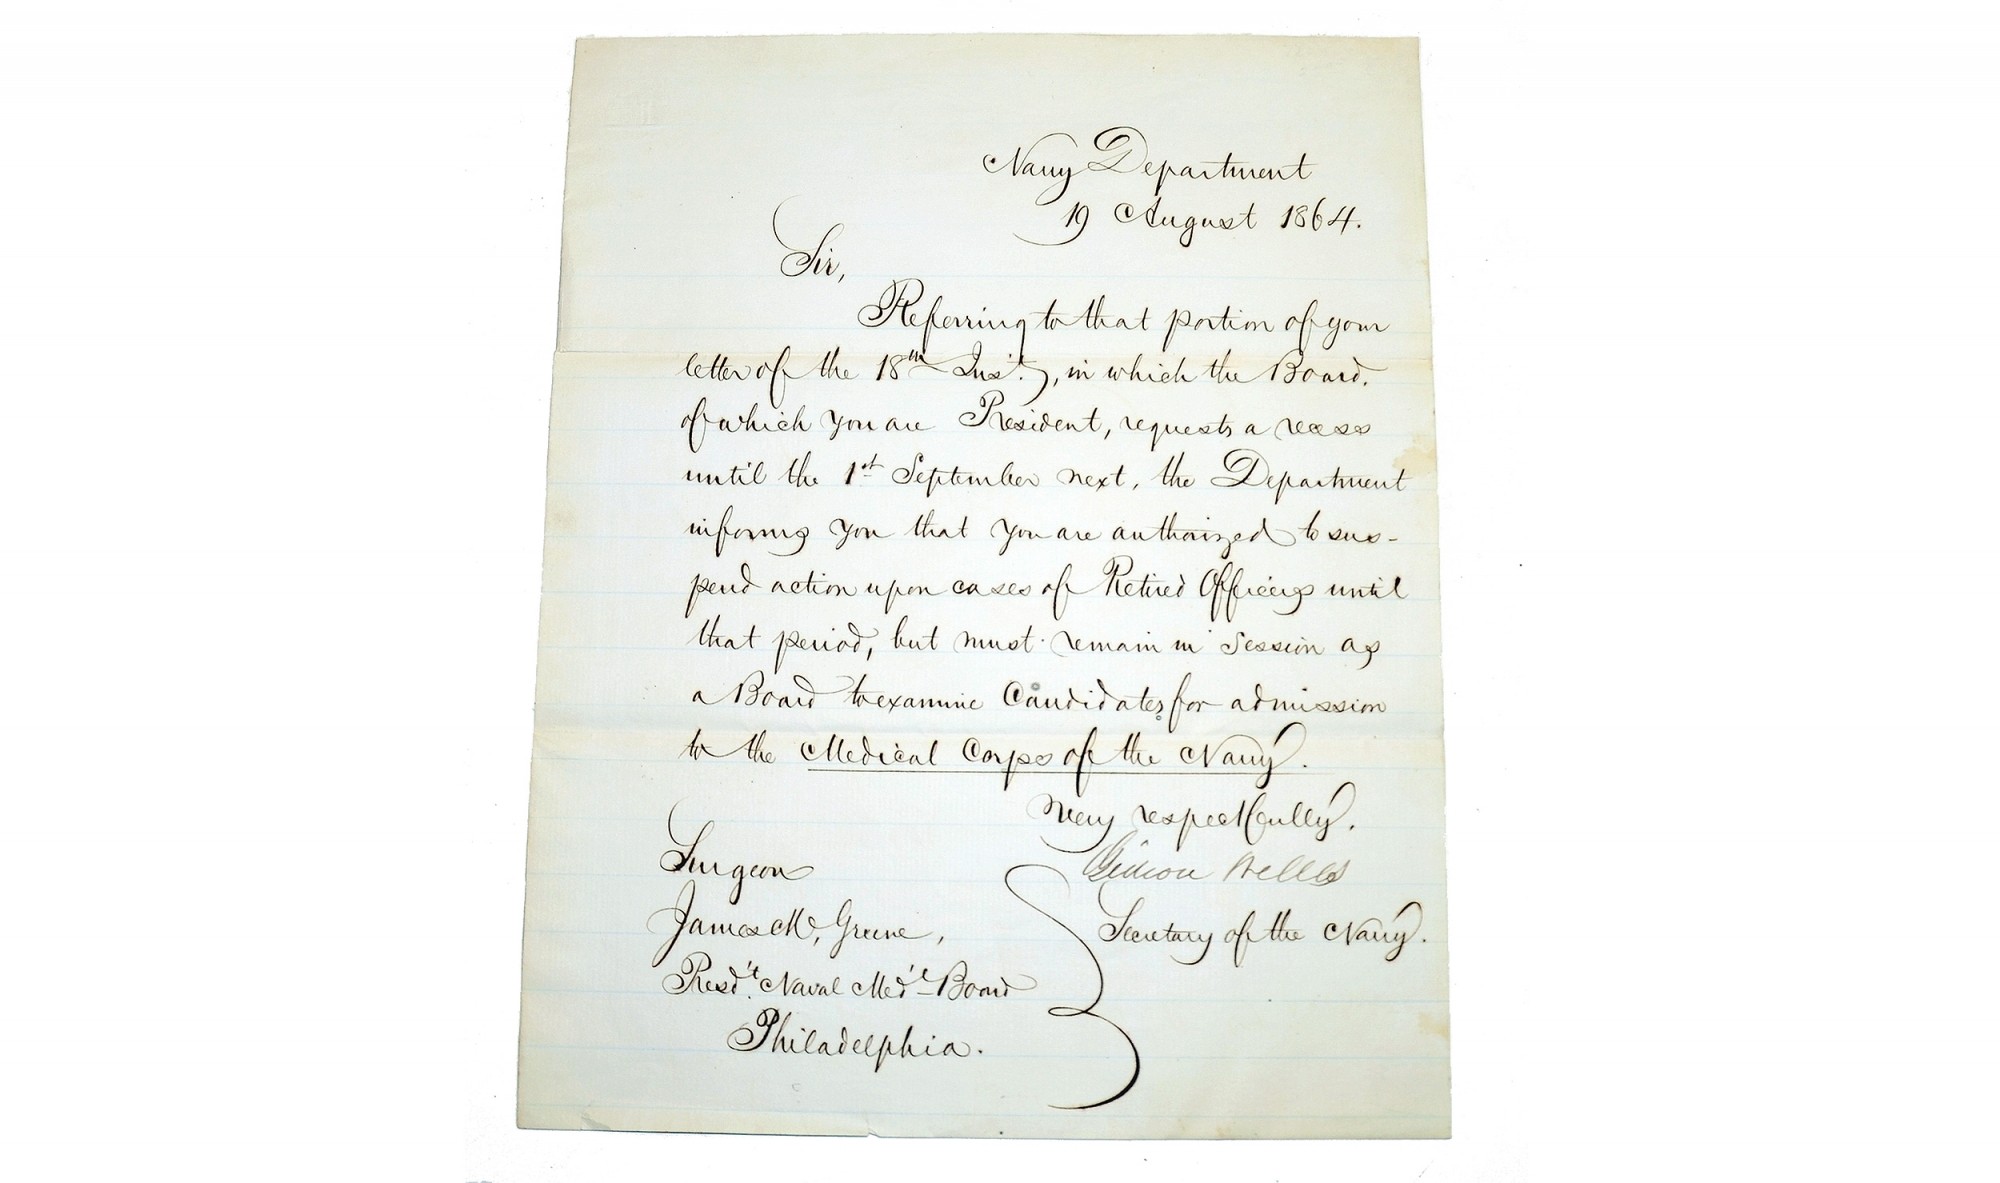 Navy Department
19 August 1864.
Sir,
Referring to that portion of your
letter of the 18th Inst., in which the Board,
of which you are President, requests a recess
until the 1st September next, the Department
informs you that you are authorized to sus-
pend action upon cases of Retired Officers until
that period, but must remain in session as
a Board to examine Candidates for admission
to the Medical Corps of the Navy.
Very respectfully,
Gideon Welles
Secretary of the Navy.
Surgeon
James M. Greene,
Presd't Naval Med'l Board
Philadelphia.